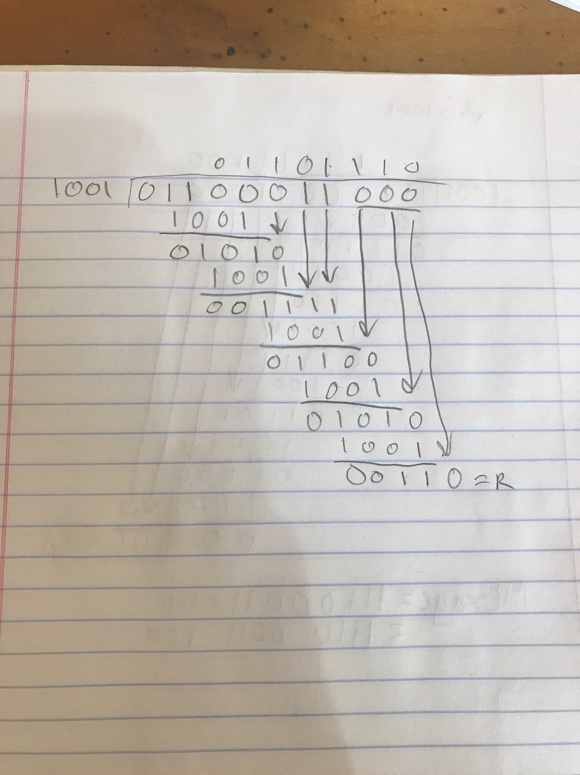 01101110
1001 01100011000
1001
01010
1001
001111
1001
01100
1001
01010
1001
00110 = R